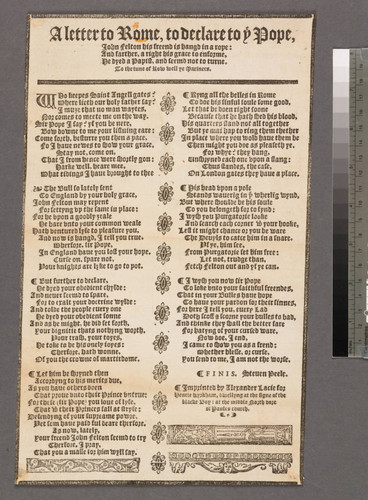 A letter to Rome, to declare to yͤ Pope,
John Felton his freend is hangd in a rope:
And farther, a right his grace to enforme,
He dyed a Papist, and seemd not to turne.
To the tune of Row well ye Mariners.
Who keepes Saint Angell gates?
Where lieth our holy father say?
I muze that no man waytes,
Nor comes to meete me on the way.
Sir Pope I say? yf you be nere,
Bow downe to me your listning eare:
Come forth, besturre you then a pace,
For I haue newes to show your grace.
Stay not, come on,
That I from hence were shortly gon:
Harke well, heare mee,
What tidings I haue brought to thee
The Bull so lately sent
To England by your holy grace,
John Felton may repent
For settyng vp the same in place:
For he vpon a goodly zeale
He bare vnto your common weale
Hath ventured lyfe to pleasure you,
And now is hangd, I tell you true.
Wherfore, sir Pope,
In England haue you lost your hope.
Curse on, spare not,
Your knights are lyke to go to pot.
¶ But further to declare,
He dyed your obedient chylde:
And neuer seemd to spare,
For to exalt your doctrine wylde:
And tolde the people euery one
He dyed your obedient sonne
And as he might, he did set forth,
Your dignitie thats nothyng worth.
Your trash, your toyes,
He toke to be his onely ioyes:
Therfore, hath wonne,
Of you the crowne of martirdome.
¶ Let him be shryned then
Accordyng to his merits due,
As you haue others doen
That proue vnto their Prince vntrue:
For these (sir Pope) you loue of lyfe,
That w their Princes fall at stryfe:
Defendyng of your supreme power,
Yet som haue paid ful deare therfore.
As now, lately,
Your freend John Felton seemd to try
Therfore, I pray,
That you a masse for him wyll say.
¶ Ryng all the belles in Rome
To doe his sinful soule some good,
Let that be doen right soone
Because that he hath shed his blood,
His quarters stand not all together
But ye mai hap to ring them thether
In place where you wold haue them be
Then might you doe as pleaseth ye.
For whye? they hang,
Unshryned each one vpon a stang:
Thus standes, the case,
On London gates they haue a place.
¶ His head vpon a pole
Stands wauerig in yͤ wherlig wynd,
But where shoulde be his soule
To you belongeth for to fynd:
I wysh you Purgatorie looke
And search each corner w your hooke,
Lest it might chance or you be ware
The Deuyls to catch him in a snare.
Yf ye, him see,
From Purgatorie set him free:
Let not, trudge than,
Fetch Felton out and yf ye can.
¶ I wysh you now sir Pope
To loke vnto your faithful freendes,
That in your Bulles haue hope
To haue your pardon for their sinnes,
For here I tell you, euery Lad
Doth scoff & scorne your bulles to bad,
And thinke they shall the better fare
For hatyng of your cursed ware.
Now doe, I end,
I came to show you as a frend:
Whether blesse, or curse,
You send to me, I am not the worse.
¶ FINIS. Steuen Peele.
¶ Imprinted by Alexander Lacie for
Henrie Kyrkham, dwellyng at the signe of the
blacke Boy: at the middle North dore
of Paules church.